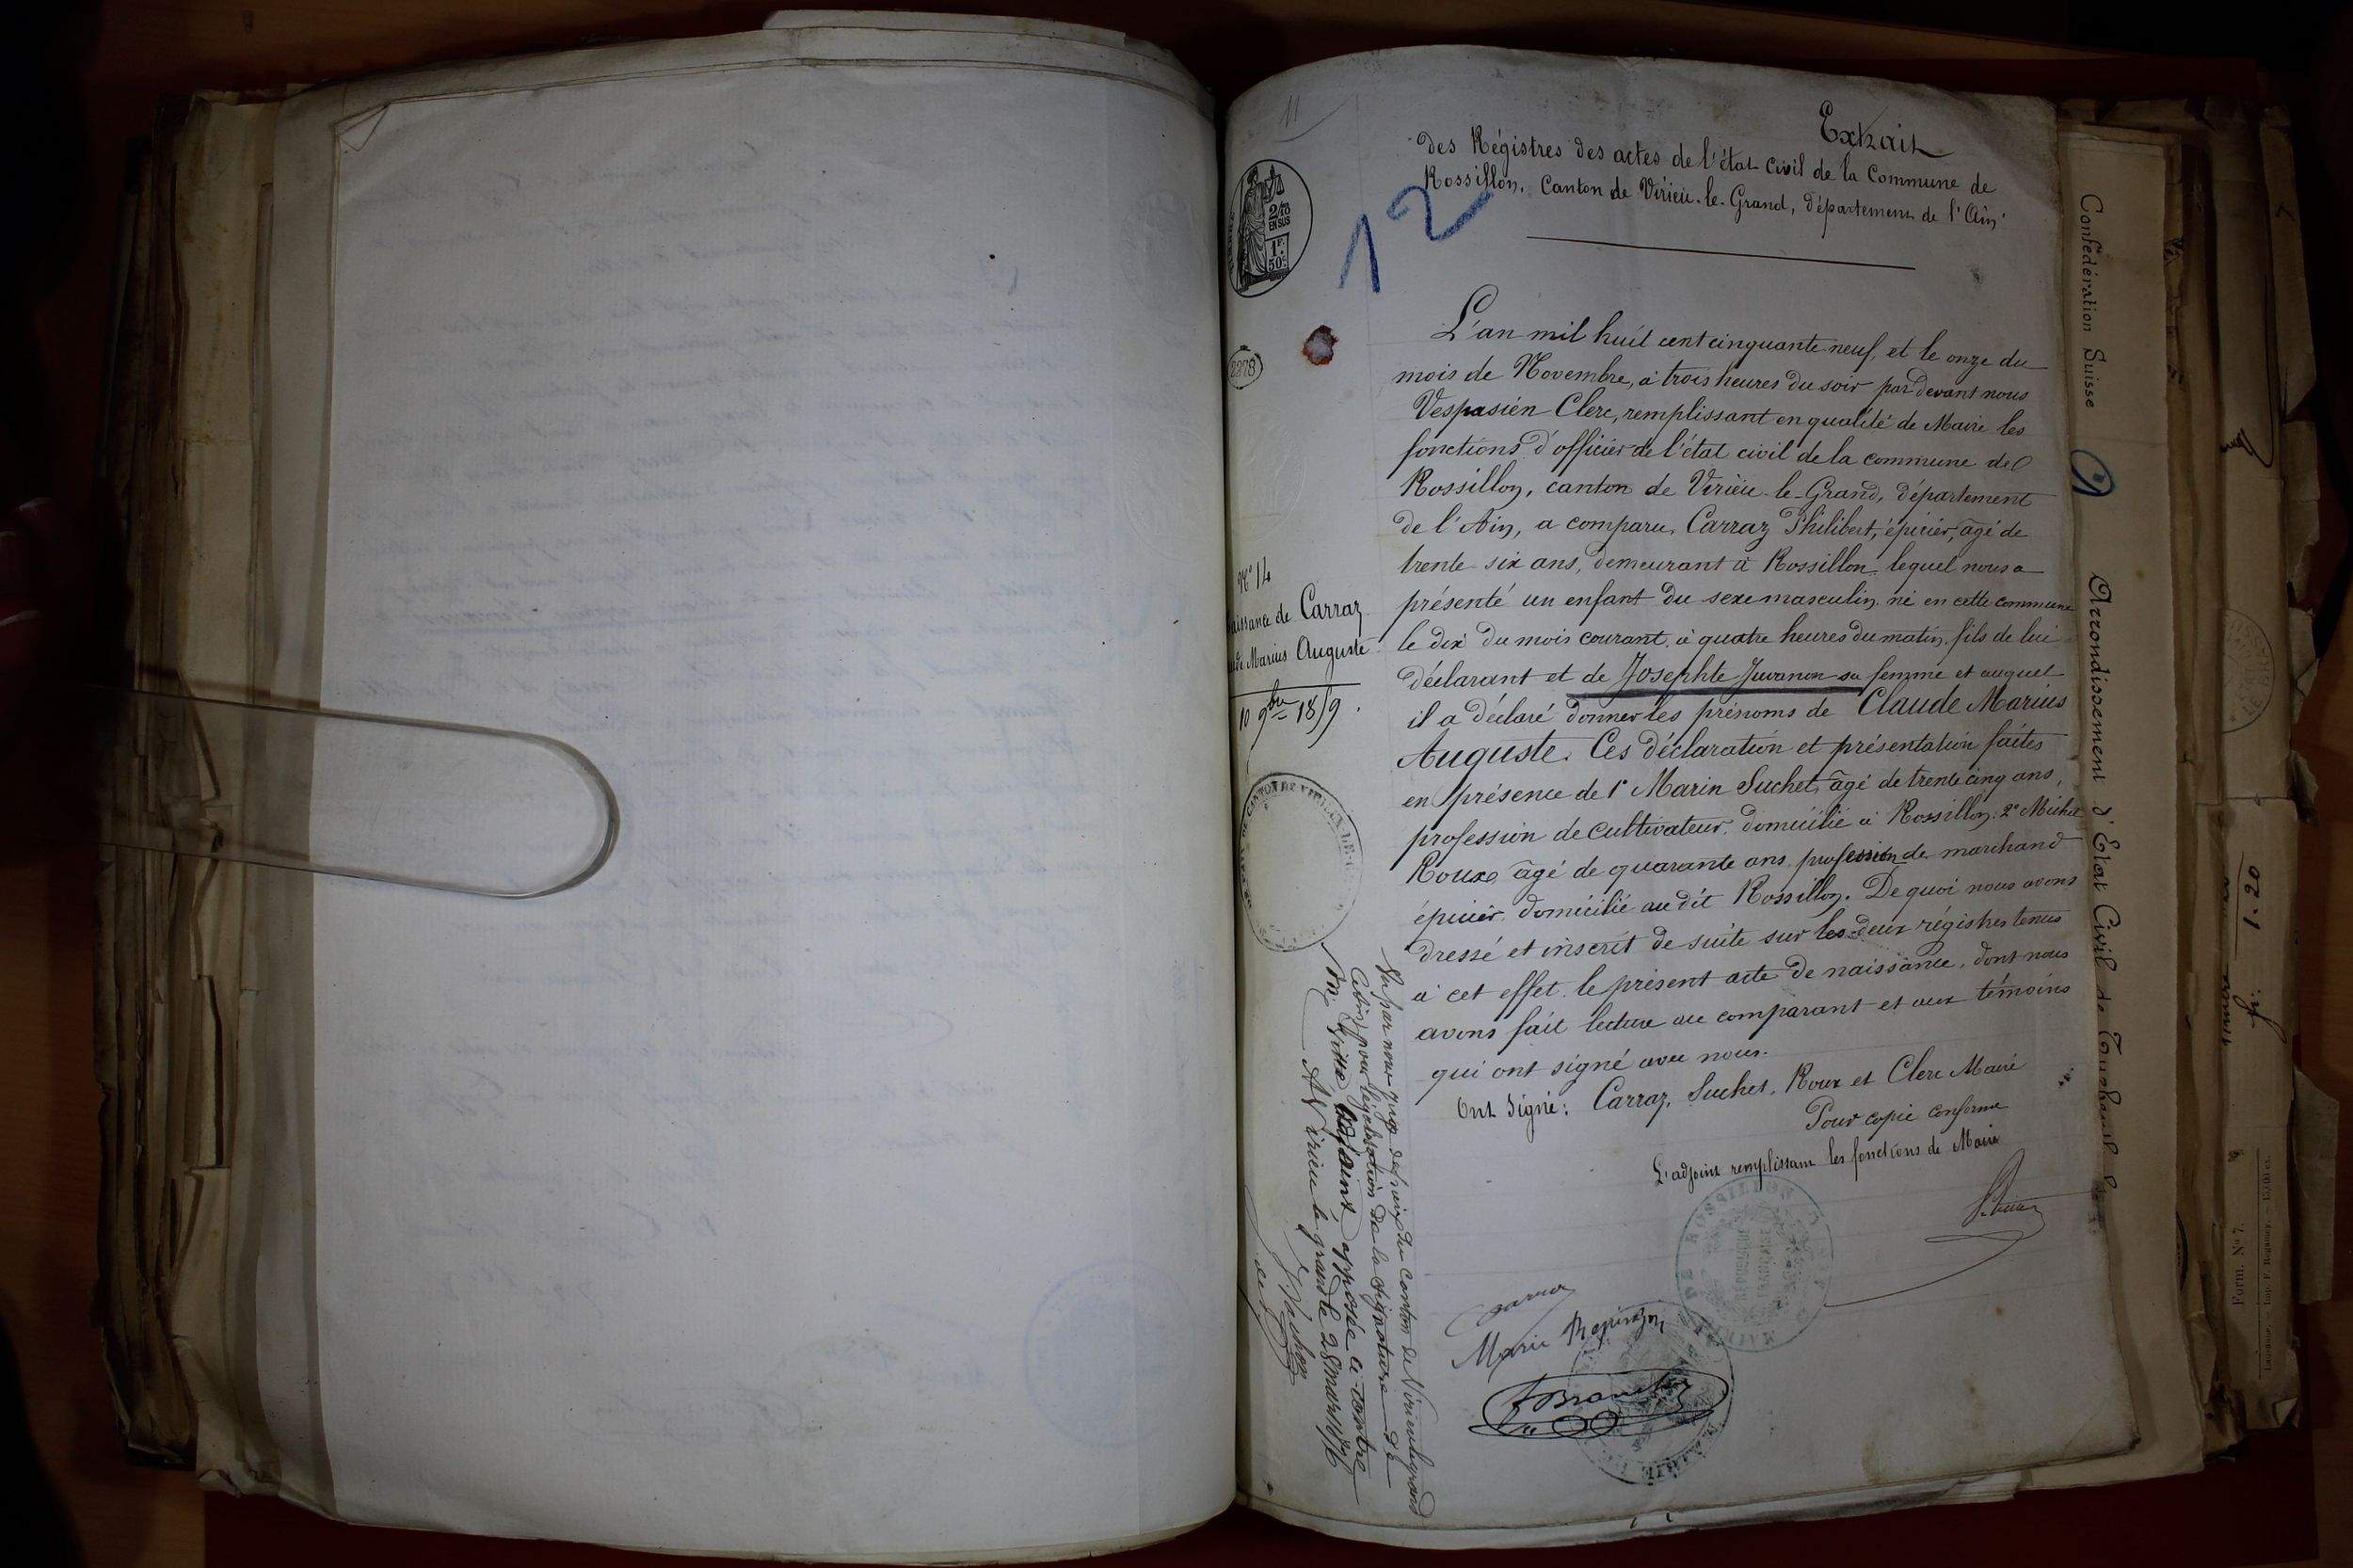 11
12
Extrait
des Régistres des actes de l'état civil de la Commune de
Rossillon, Canton de Virieu-le-Grand, département de l'Ain.
2/10
EN SUS
1F.
50c.
2278
L'an mil huit cent cinquante neuf, et le onze du
mois de Novembre, à trois heures du soir par devant nous
Vespasien Clerc, remplissant en qualité de Maire les
fonctions d'officier de l'état civil de la commune de
Rossillon, canton de Virieu-le-Grand, département
de l'Ain, a comparu, Carraz Philibert, épicier, âgé de
trente six ans, demeurant à Rossillon, lequel nous a
présenté un enfant du sexe masculin né en cette commune
le dix du mois courant, à quatre heures du matin, fils de lui
déclarant et de Josephte Juvanon sa femme et auquel
il a déclaré donner les prénoms de Claude Marius
Auguste. Ces déclaration et présentation faites
en présence de 1° Marin Suchet, âgé de trente cinq ans,
profession de cultivateur, domicilié à Rossillon. 2° Michel
Roux âgé de quarante ans, profession de marchand
épicier, domicilié au dit Rossillon. De quoi nous avons
dressé et inscrit de suite sur les deux régistres tenus
à cet effet le présent acte de naissance, dont nous
avons fait lecture au comparant et aux témoins
qui ont signé avec nous.
Ont Signé: Carraz, Suchet, Roux et Clerc Maire
Pour copie conforme
L'adjoint remplissant les fonctions de Maire
Marie
N° 14
aissance de Carraz
Marius Auguste
10 9bre 1859
CANTON DE VIRIEU-LE-
Vu par nous juge de paix du Canton de Virieu le grand
pour légalisation de la signature de
apposée ci-contre
A Virieu le grand le 28 mars 1876
DE ROSSILLON
Confédération Suisse
Arrondissement d'Etat Civil de
fr. 1.20
Form. N° 7.